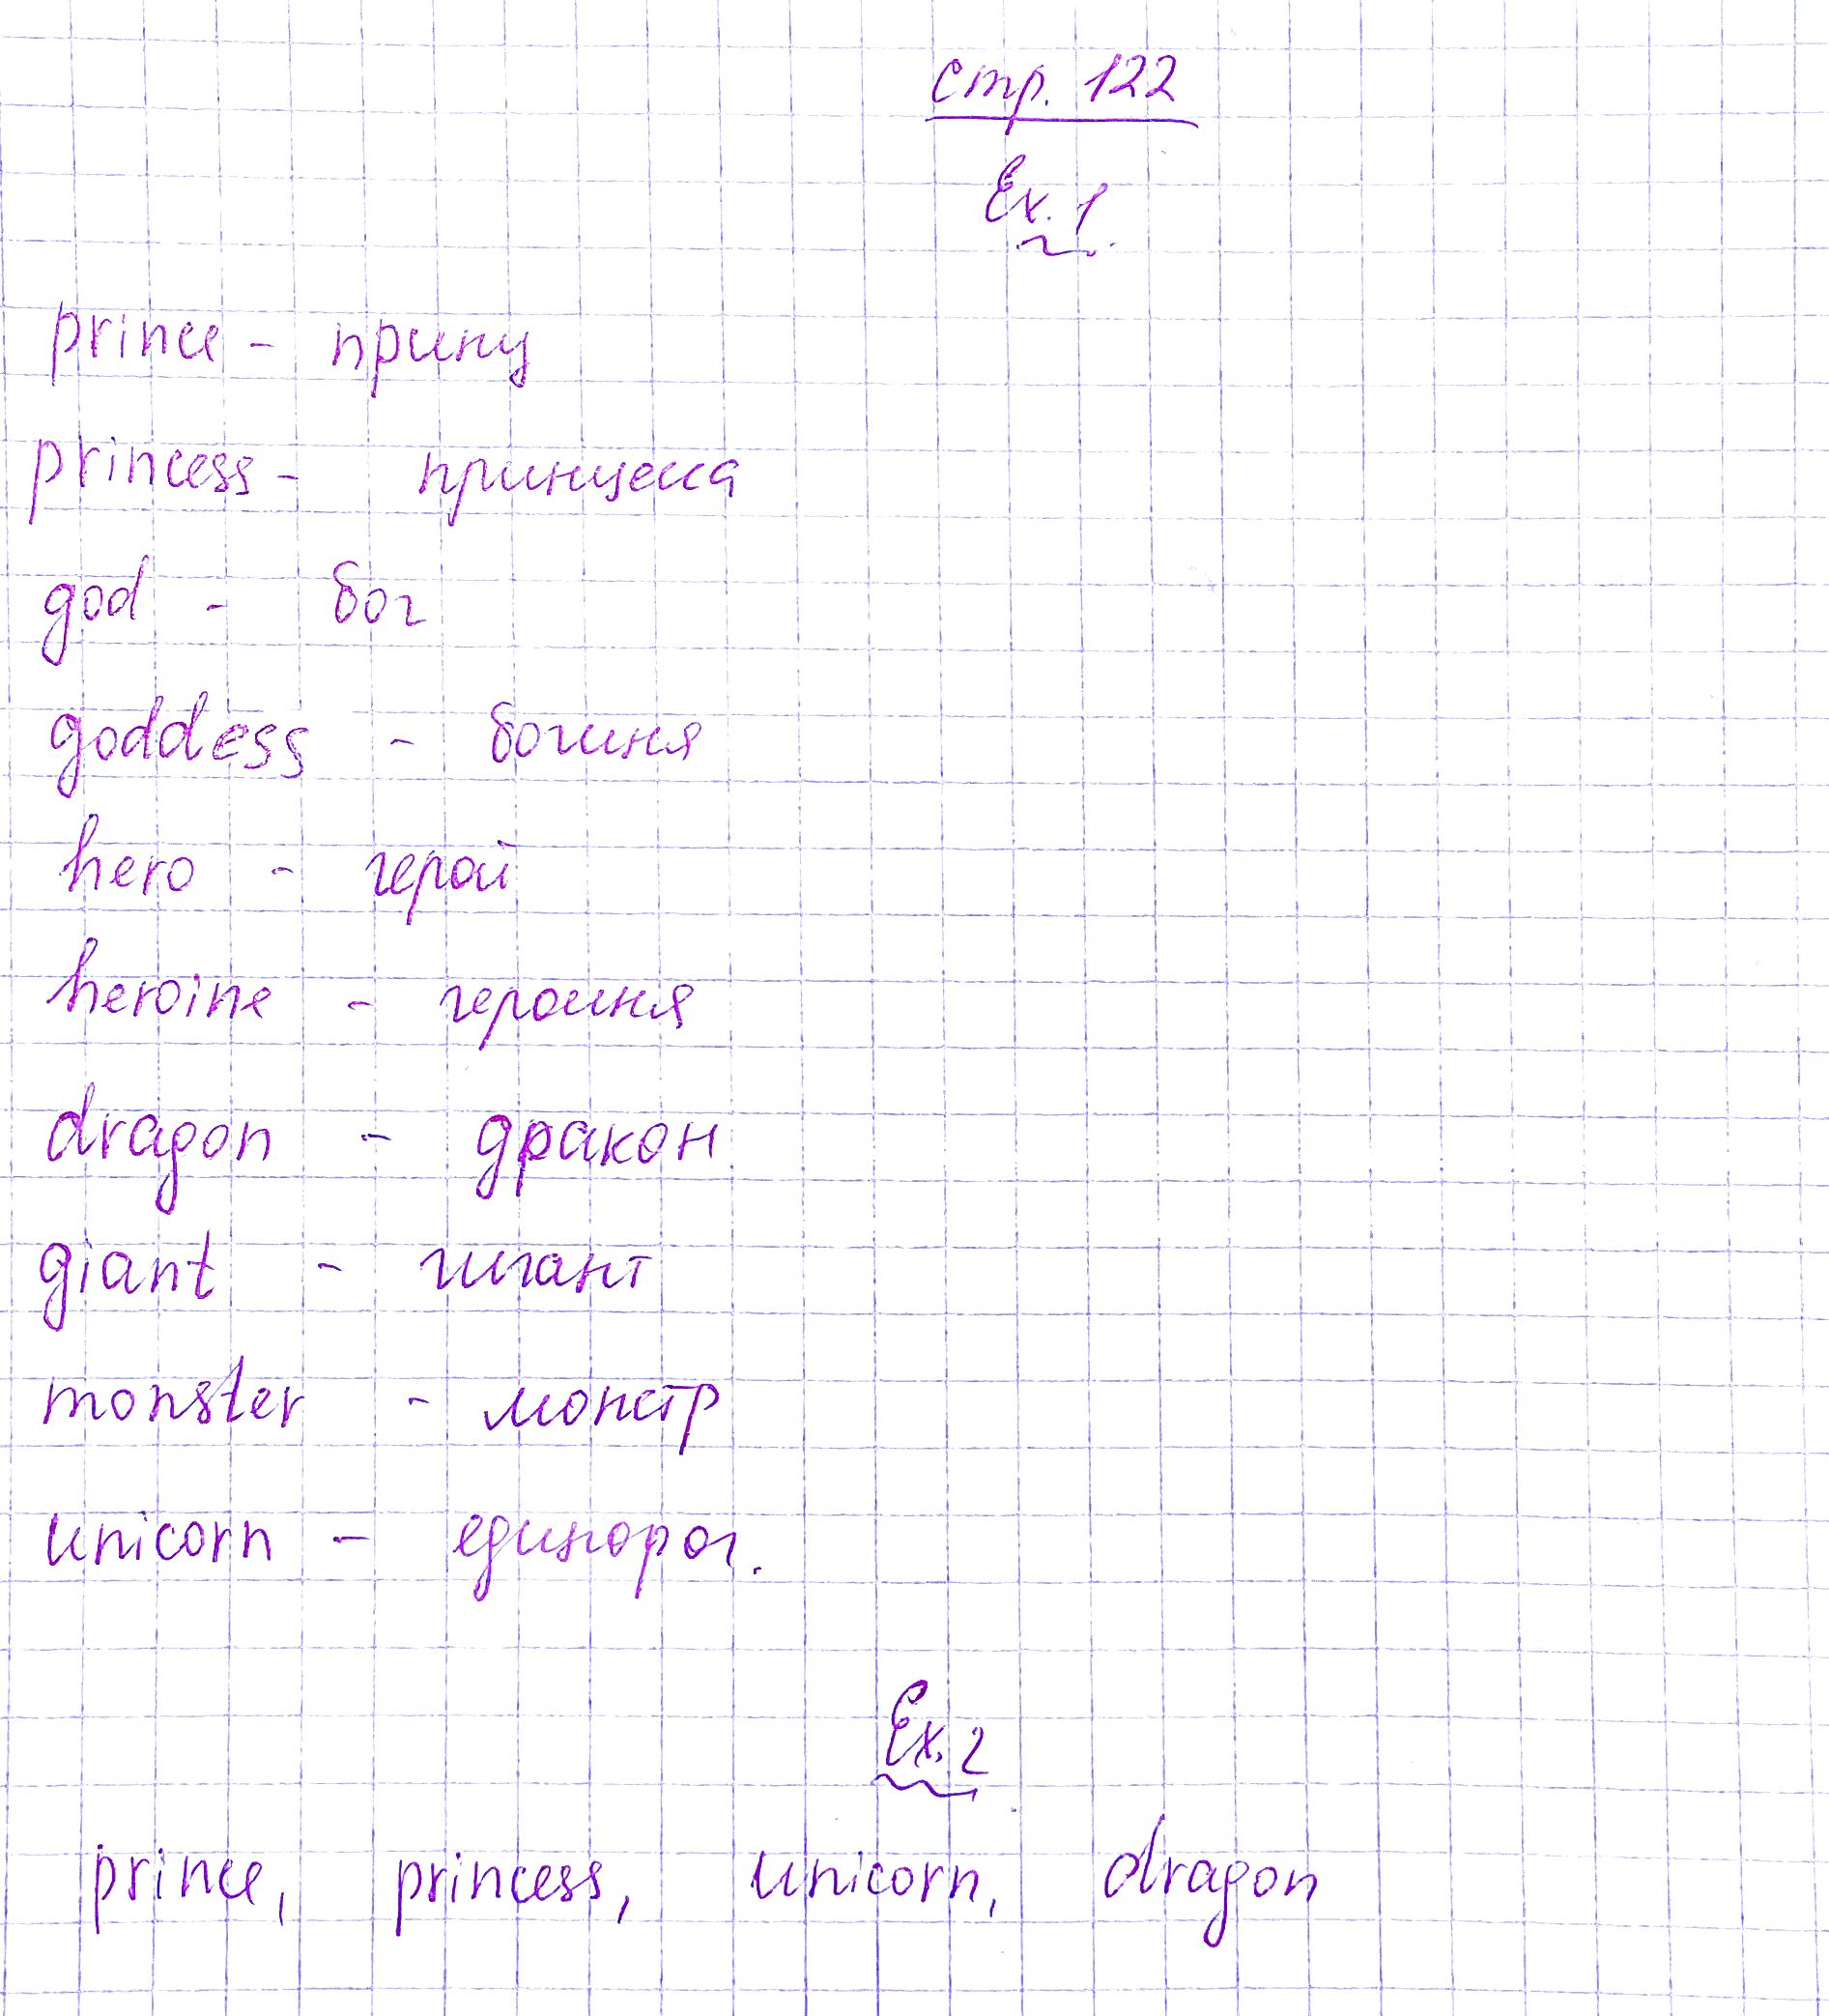 стр. 122
Ex. 1.
prince - принц
princess - принцесса
god - бог
goddess - богиня
hero - герой
heroine - героиня
dragon - дракон
giant - гигант
monster - монстр
unicorn - единорог.
Ex. 2
prince, princess, unicorn, dragon